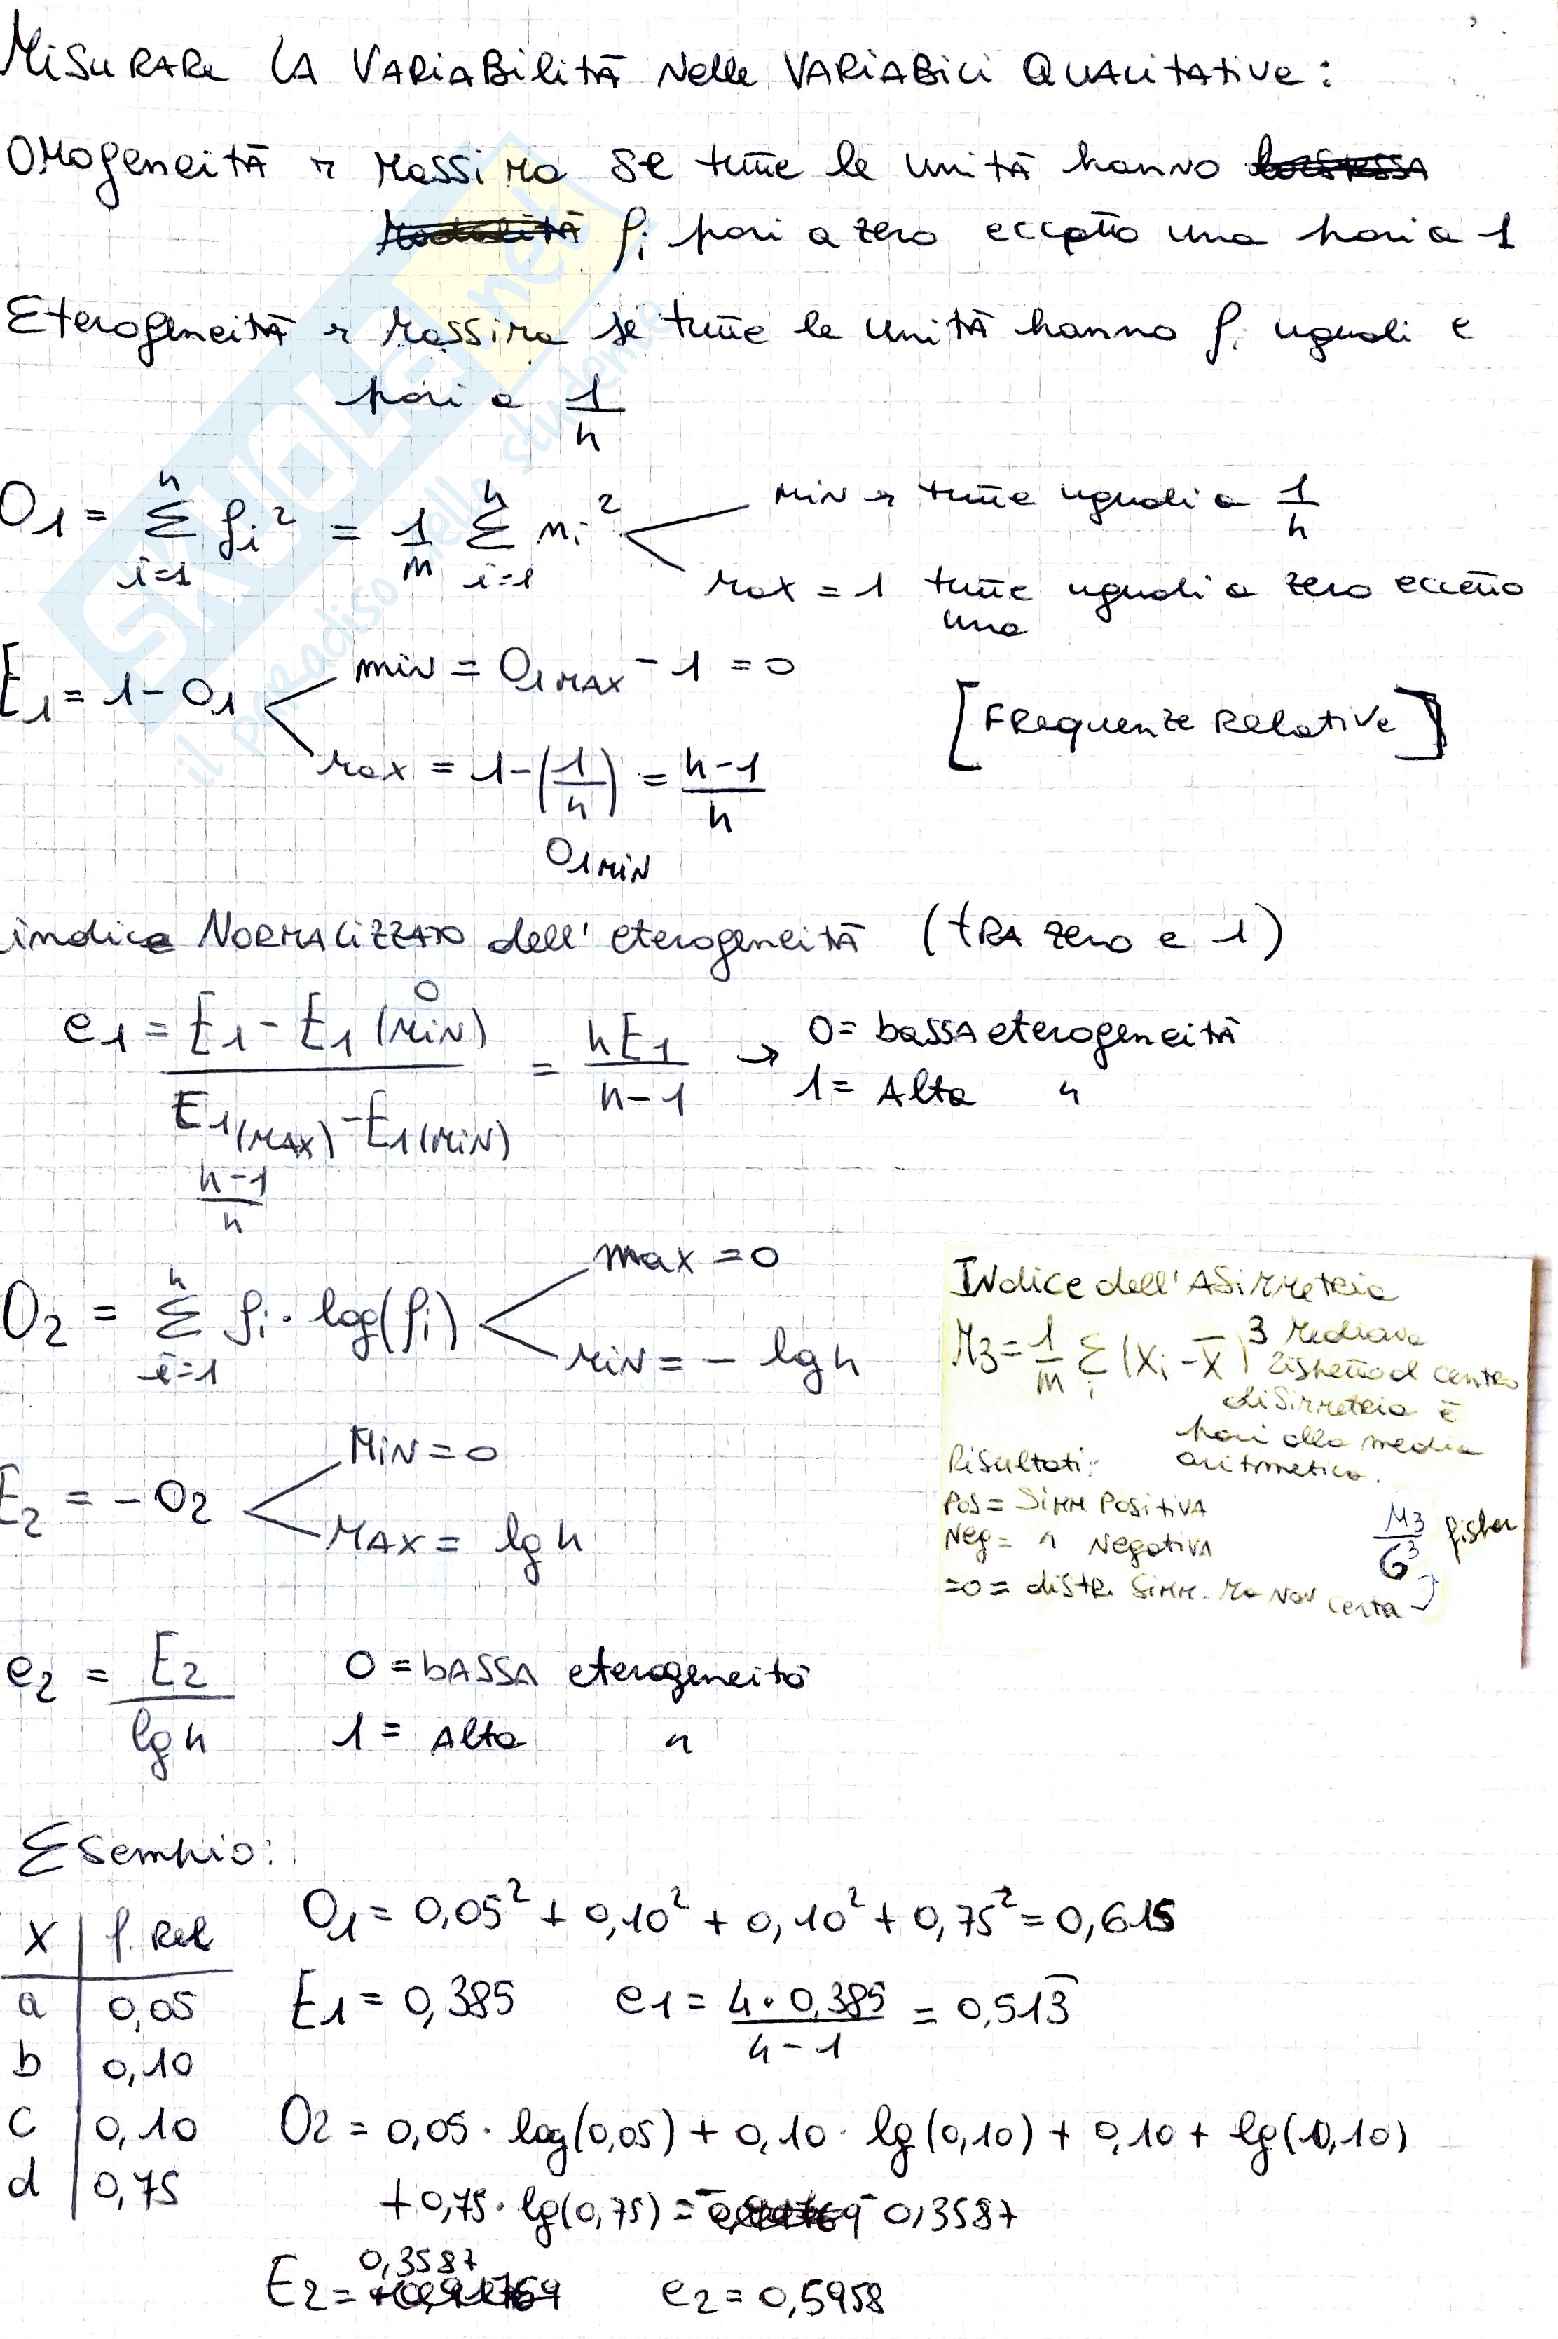 MISURARE LA VARIABILITÀ Nelle VARIABILI QUALITATIVE:
OMOgeneità → Massima se tutte le unità hanno
fi pari a zero eccetto una pari a 1
Eterogeneità → Massima se tutte le unità hanno fi uguali e
pari a 1/h
O1 = Σ(i=1→h) fi² = 1/m Σ(i=1→h) ni²
MIN → tutte uguali a 1/h
max = 1 tutte uguali a zero eccetto
una
E1 = 1 - O1
min = O1MAX - 1 = 0
max = 1-(1/h) = h-1/h
O1MIN
[Frequenze Relative]
indice NORMALIZZATO dell' eterogeneità (tRA zero e 1)
e1 = E1 - E1(MIN) / E1(MAX) - E1(MIN) = hE1 / h-1 → 0 = bassa eterogeneità
0
1 = Alta "
h-1/h
O2 = Σ(i=1→h) fi · log(fi)
max = 0
MIN = - lg h
E2 = - O2
MIN = 0
MAX = lg h
INdice dell'ASimmetria
M3 = 1/m Σi (xi - x̄)³ Mediana
rispetto al centro
di Simmetria è
pari alla media
aritmetica.
Risultati:
Pos = Simm Positiva
Neg = " Negativa
=0 = distr. simm. ma non certa
M3/σ³ fisher
e2 = E2 / lg h
0 = bASSA eterogeneità
1 = Alta "
Esempio:
x | f. Rel
a | 0,05
b | 0,10
c | 0,10
d | 0,75
O1 = 0,05² + 0,10² + 0,10² + 0,75² = 0,615
E1 = 0,385 e1 = 4 · 0,385 / 4 - 1 = 0,513̄
O2 = 0,05 · log(0,05) + 0,10 · lg(0,10) + 0,10 + lg(0,10)
+ 0,75 · lg(0,75) = - 0,3587
E2 = 0,3587 e2 = 0,5958
SKUOLA.net
il paradiso dello studente